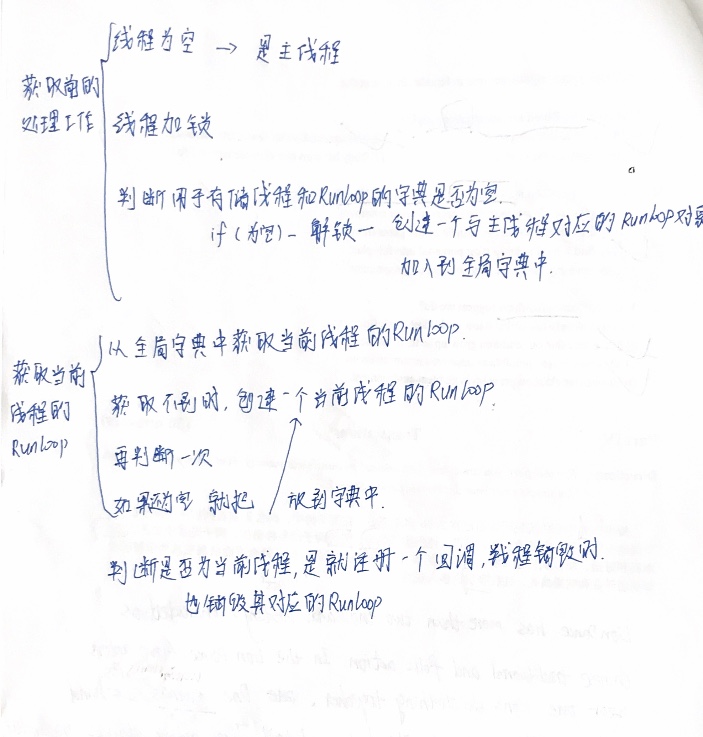 线程为空 → 是主线程
获取前的
处理工作
线程加锁
判断用于存储线程和Runloop的字典是否为空.
if(为空)- 解锁- 创建一个与主线程对应的Runloop对象
加入到全局字典中.
从全局字典中获取当前线程的Runloop.
获取当前
线程的
Runloop
获取不到时,创建一个当前线程的Runloop.
再判断一次
如果还为空 就把 放到字典中.
判断是否为当前线程,是就注册一个回调,线程销毁时.
也销毁其对应的Runloop